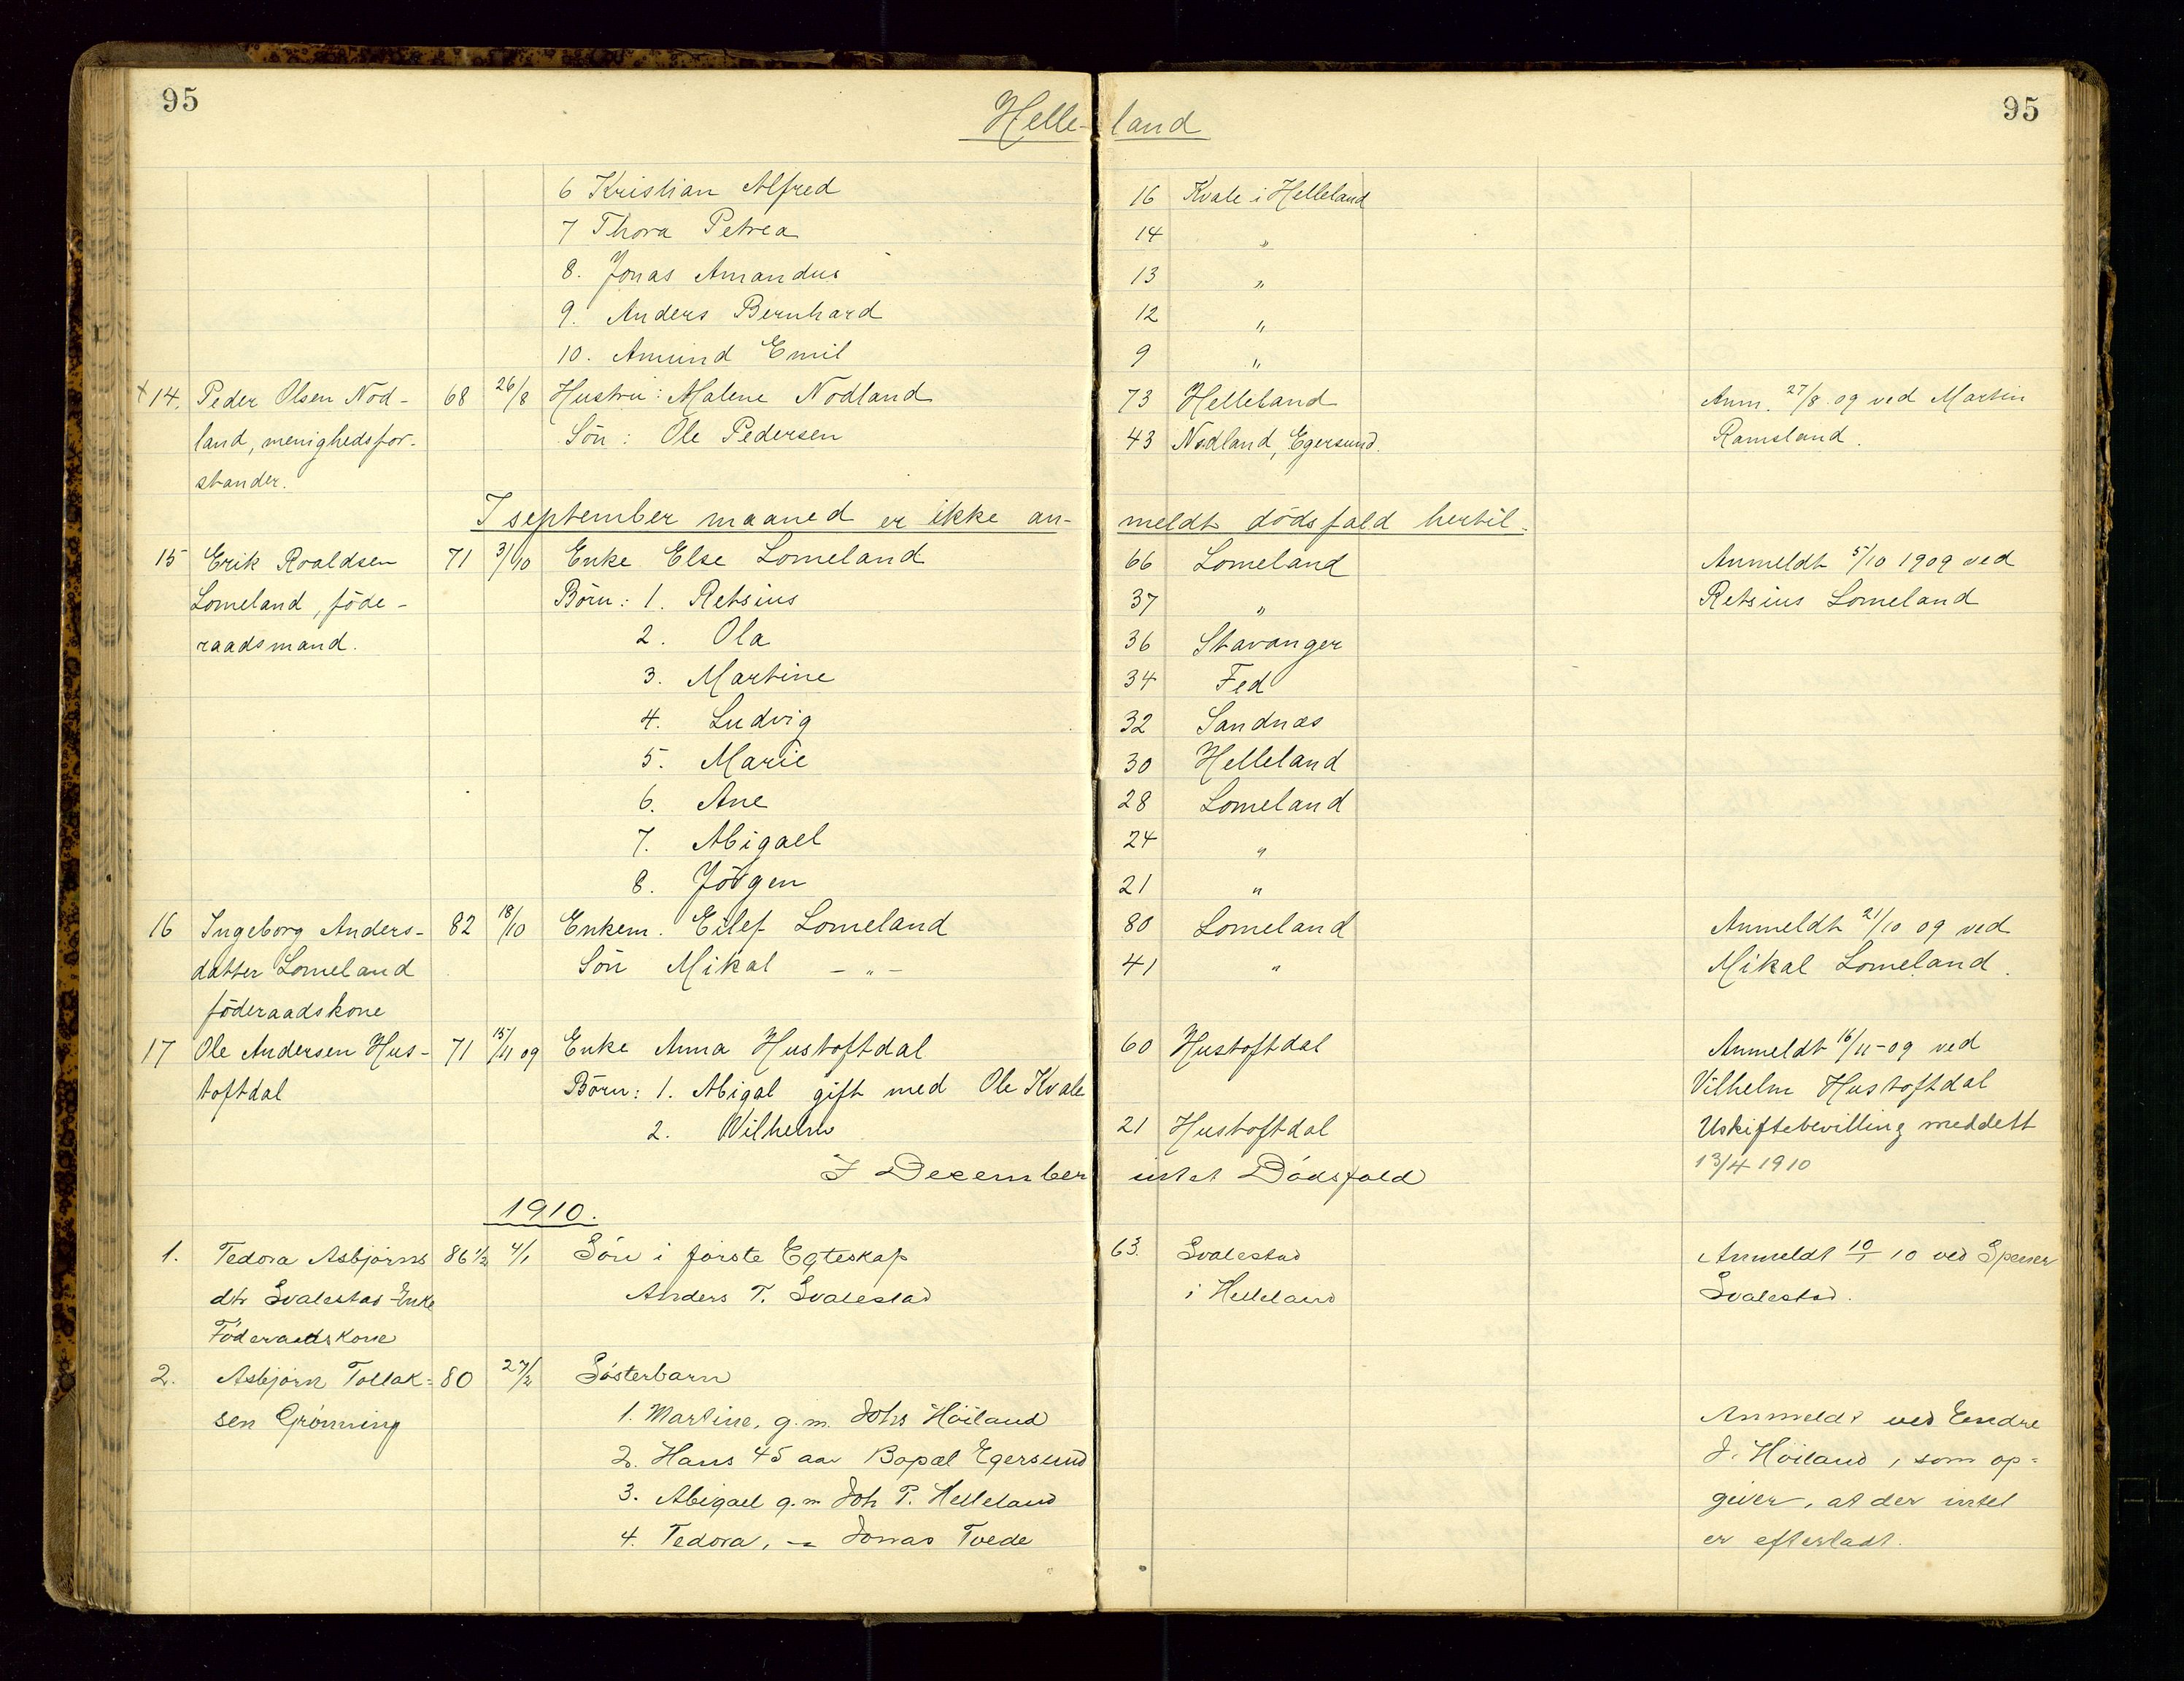 95
95
Helle-land
6 Kristian Alfred 16 Kvale i Helleland
7 Thora Petrea 14 "
8. Jonas Amandus 13 "
9. Anders Bernhard 12 "
10. Amund Emil 9 "
+ 14. Peder Olsen Nod- 68 26/8 Hustru: Malene Nodland 73 Helleland Anm. 27/8.09 ved Martin
land, menighedsfor- Søn: Ole Pedersen 43 Nodland, Egersund. Ramsland.
stander.
I september maaned er ikke an- meldt dödsfald hertil.
15 Erik Roaldsen 71 3/10 Enke Else Lomeland 66 Lomeland Anmeldt 5/10 1909 ved
Lomeland, föde- Börn: 1. Retsius 37 " Retsius Lomeland
raadsmand. 2. Ola 36 Stavanger
3. Martine 34 Fed
4. Ludvig 32 Sandnæs
5. Marie 30 Helleland
6. Ane 28 Lomeland
7. Abigael 24 "
8. Jörgen 21 "
16 Ingeborg Anders- 82 18/10 Enkem. Eilef Lomeland 80 Lomeland Anmeldt 21/10 09 ved
datter Lomeland Sön Mikal - " - 41 " Mikal Lomeland.
föderaadskone
17 Ole Andersen Hus- 71 15/11 09 Enke Anna Hustoftdal 60 Hustoftdal Anmeldt 16/11-09 ved
toftdal Börn: 1. Abigal gift med Ole Kvale Vilhelm Hustoftdal
2. Wilhelm 21 Hustoftdal Uskiftebevilling meddelt
I December intet Dødsfald 13/4 1910
1910.
1. Tedora Asbjørns 86 1/2 4/1 Søn i første Egteskap 63. Svalestad Anmeldt 10/1 10 ved
dtr Svalestad Enke Anders T. Svalestad i Helleland Svalestad.
Föderaadskone
2. Asbjørn Tollak= 80 27/2 Søsterbarn
sen Grønning 1. Martine, g.m. Johs Höiland Anmeldt ved Endre
2. Hans 45 aar Bopæl Egersund J. Höiland, som op=
3. Abigael g.m Joh P. Helleland giver, at der intet
4. Tedora, -"- Jonas Tvede er efterladt.